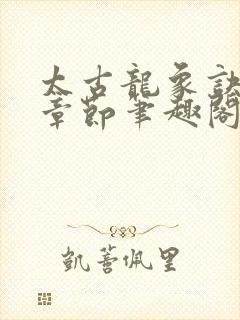 太古龍象訣
章節筆趣閣
凱蒂佩里